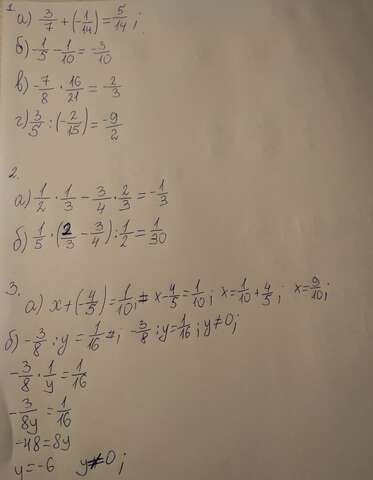 1. а) 3/7 + (-1/14) = 5/14;
б) -1/5 - 1/10 = -3/10
в) -7/8 · 16/21 = -2/3
г) 3/5 : (-2/15) = -9/2
2.
а) 1/2 · 1/3 - 3/4 · 2/3 = -1/3
б) 1/5 · (2/3 - 3/4) : 1/2 = 1/30
3.
а) x + (-4/5) = 1/10; x - 4/5 = 1/10; x = 1/10 + 4/5; x = 9/10;
б) -3/8 : y = 1/16; -3/8 : y = 1/16; y ≠ 0;
-3/8 · 1/y = 1/16
-3/8y = 1/16
-48 = 8y
y = -6 y ≠ 0;